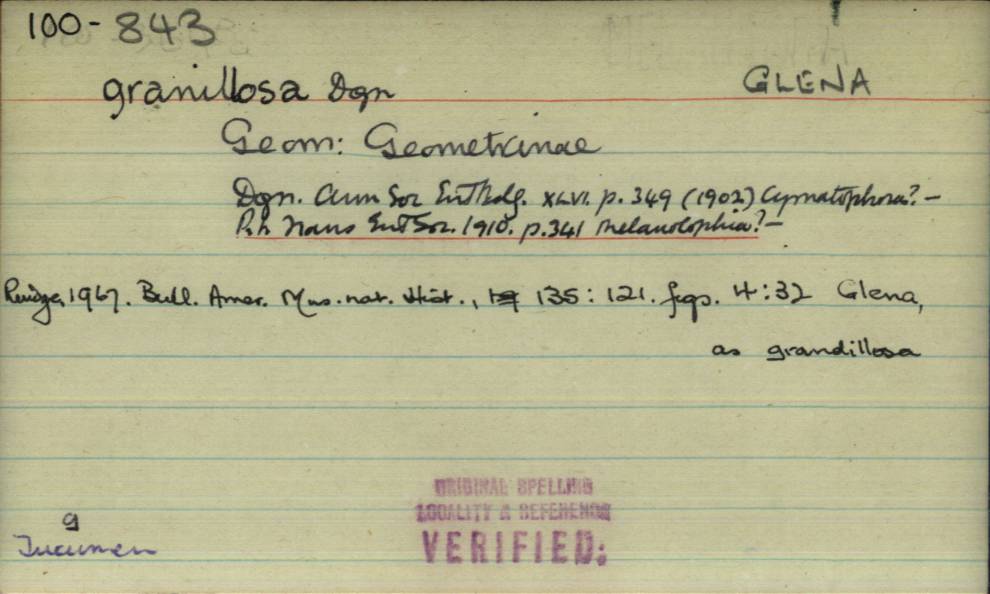 100-843
granillosa Dgn GLENA
Geom: Geometrinae
Dgn. Ann Soc Ent Belg. XLVI. p. 349 (1902) Cymatophora? —
Prt. Trans Ent Soc. 1910. p. 341 Melanolophia? —
Rindge, 1967. Bull. Amer. Mus. nat. Hist., 135: 121. figs. 4:32 Glena,
as grandillosa
ORIGINAL SPELLING
LOCALITY & REFERENCE
VERIFIED:
g
Tucuman